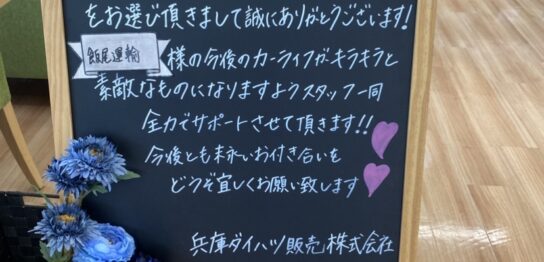 をお選び頂きまして誠にありがとうございます!
飯尾運輸 様の今後のカーライフがキラキラと
素敵なものになりますようスタッフ一同
全力でサポートさせて頂きます!!
今後とも末永いお付き合いを
どうぞ宜しくお願い致します
兵庫ダイハツ販売株式会社